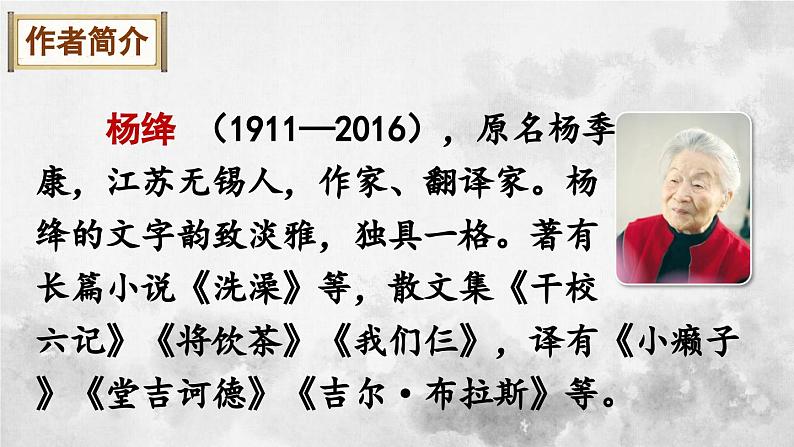 作者简介
杨绛（1911—2016），原名杨季
康，江苏无锡人，作家、翻译家。杨
绛的文字韵致淡雅，独具一格。著有
长篇小说《洗澡》等，散文集《干校
六记》《将饮茶》《我们仨》，译有《小癞子
》《堂吉诃德》《吉尔·布拉斯》等。